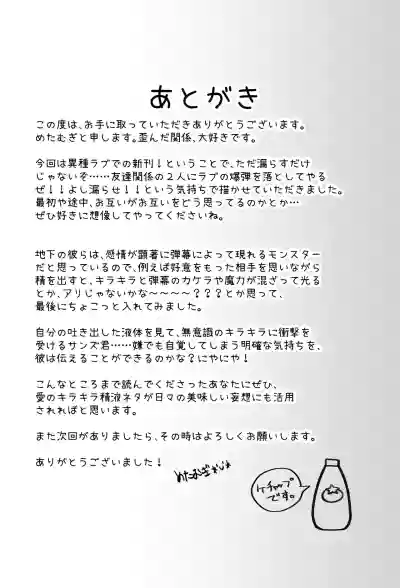 あとがき
この度は、お手に取っていただきありがとうございます。
めたむぎと申します。歪んだ関係、大好きです。
今回は異種ラブでの新刊！ということで、ただ漏らすだけ
じゃないぞ……友達関係の2人にラブの爆弾を落としてやる
ぜ！！よし漏らせ！！という気持ちで描かせていただきました。
最初や途中、お互いがお互いをどう思ってるのかとか…
ぜひ好きに想像してやってくださいね。
地下の彼らは、感情が顕著に弾幕によって現れるモンスター
だと思っているので、例えば好意をもった相手を思いながら
精を出すと、キラキラと弾幕のカケラや魔力が混ざって光る
とか、アリじゃないかな～～～～？？？とか思って、
最後にちょこっと入れてみました。
自分の吐き出した液体を見て、無意識のキラキラに衝撃を
受けるサンズ君……嫌でも自覚してしまう明確な気持ちを、
彼は伝えることができるのかな？にやにや！
こんなところまで読んでくださったあなたにぜひ、
愛のキラキラ精液ネタが日々の美味しい妄想にも活用
されればと思います。
また次回がありましたら、その時はよろしくお願いします。
ありがとうございました！
ケチャップ
です。